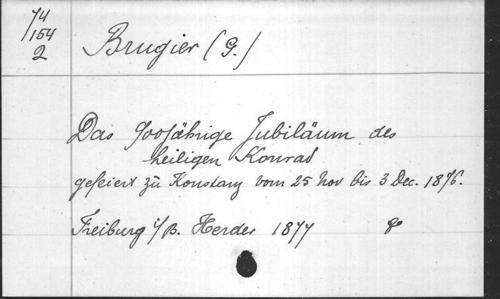 74
/164
2
Brugier (G.)
Das 900jährige Jubiläum des
heiligen Konrad
gefeiert zu Konstanz vom 25 Nov bis 3 Dec. 1876.
Freiburg i/B. Herder 1877 8°